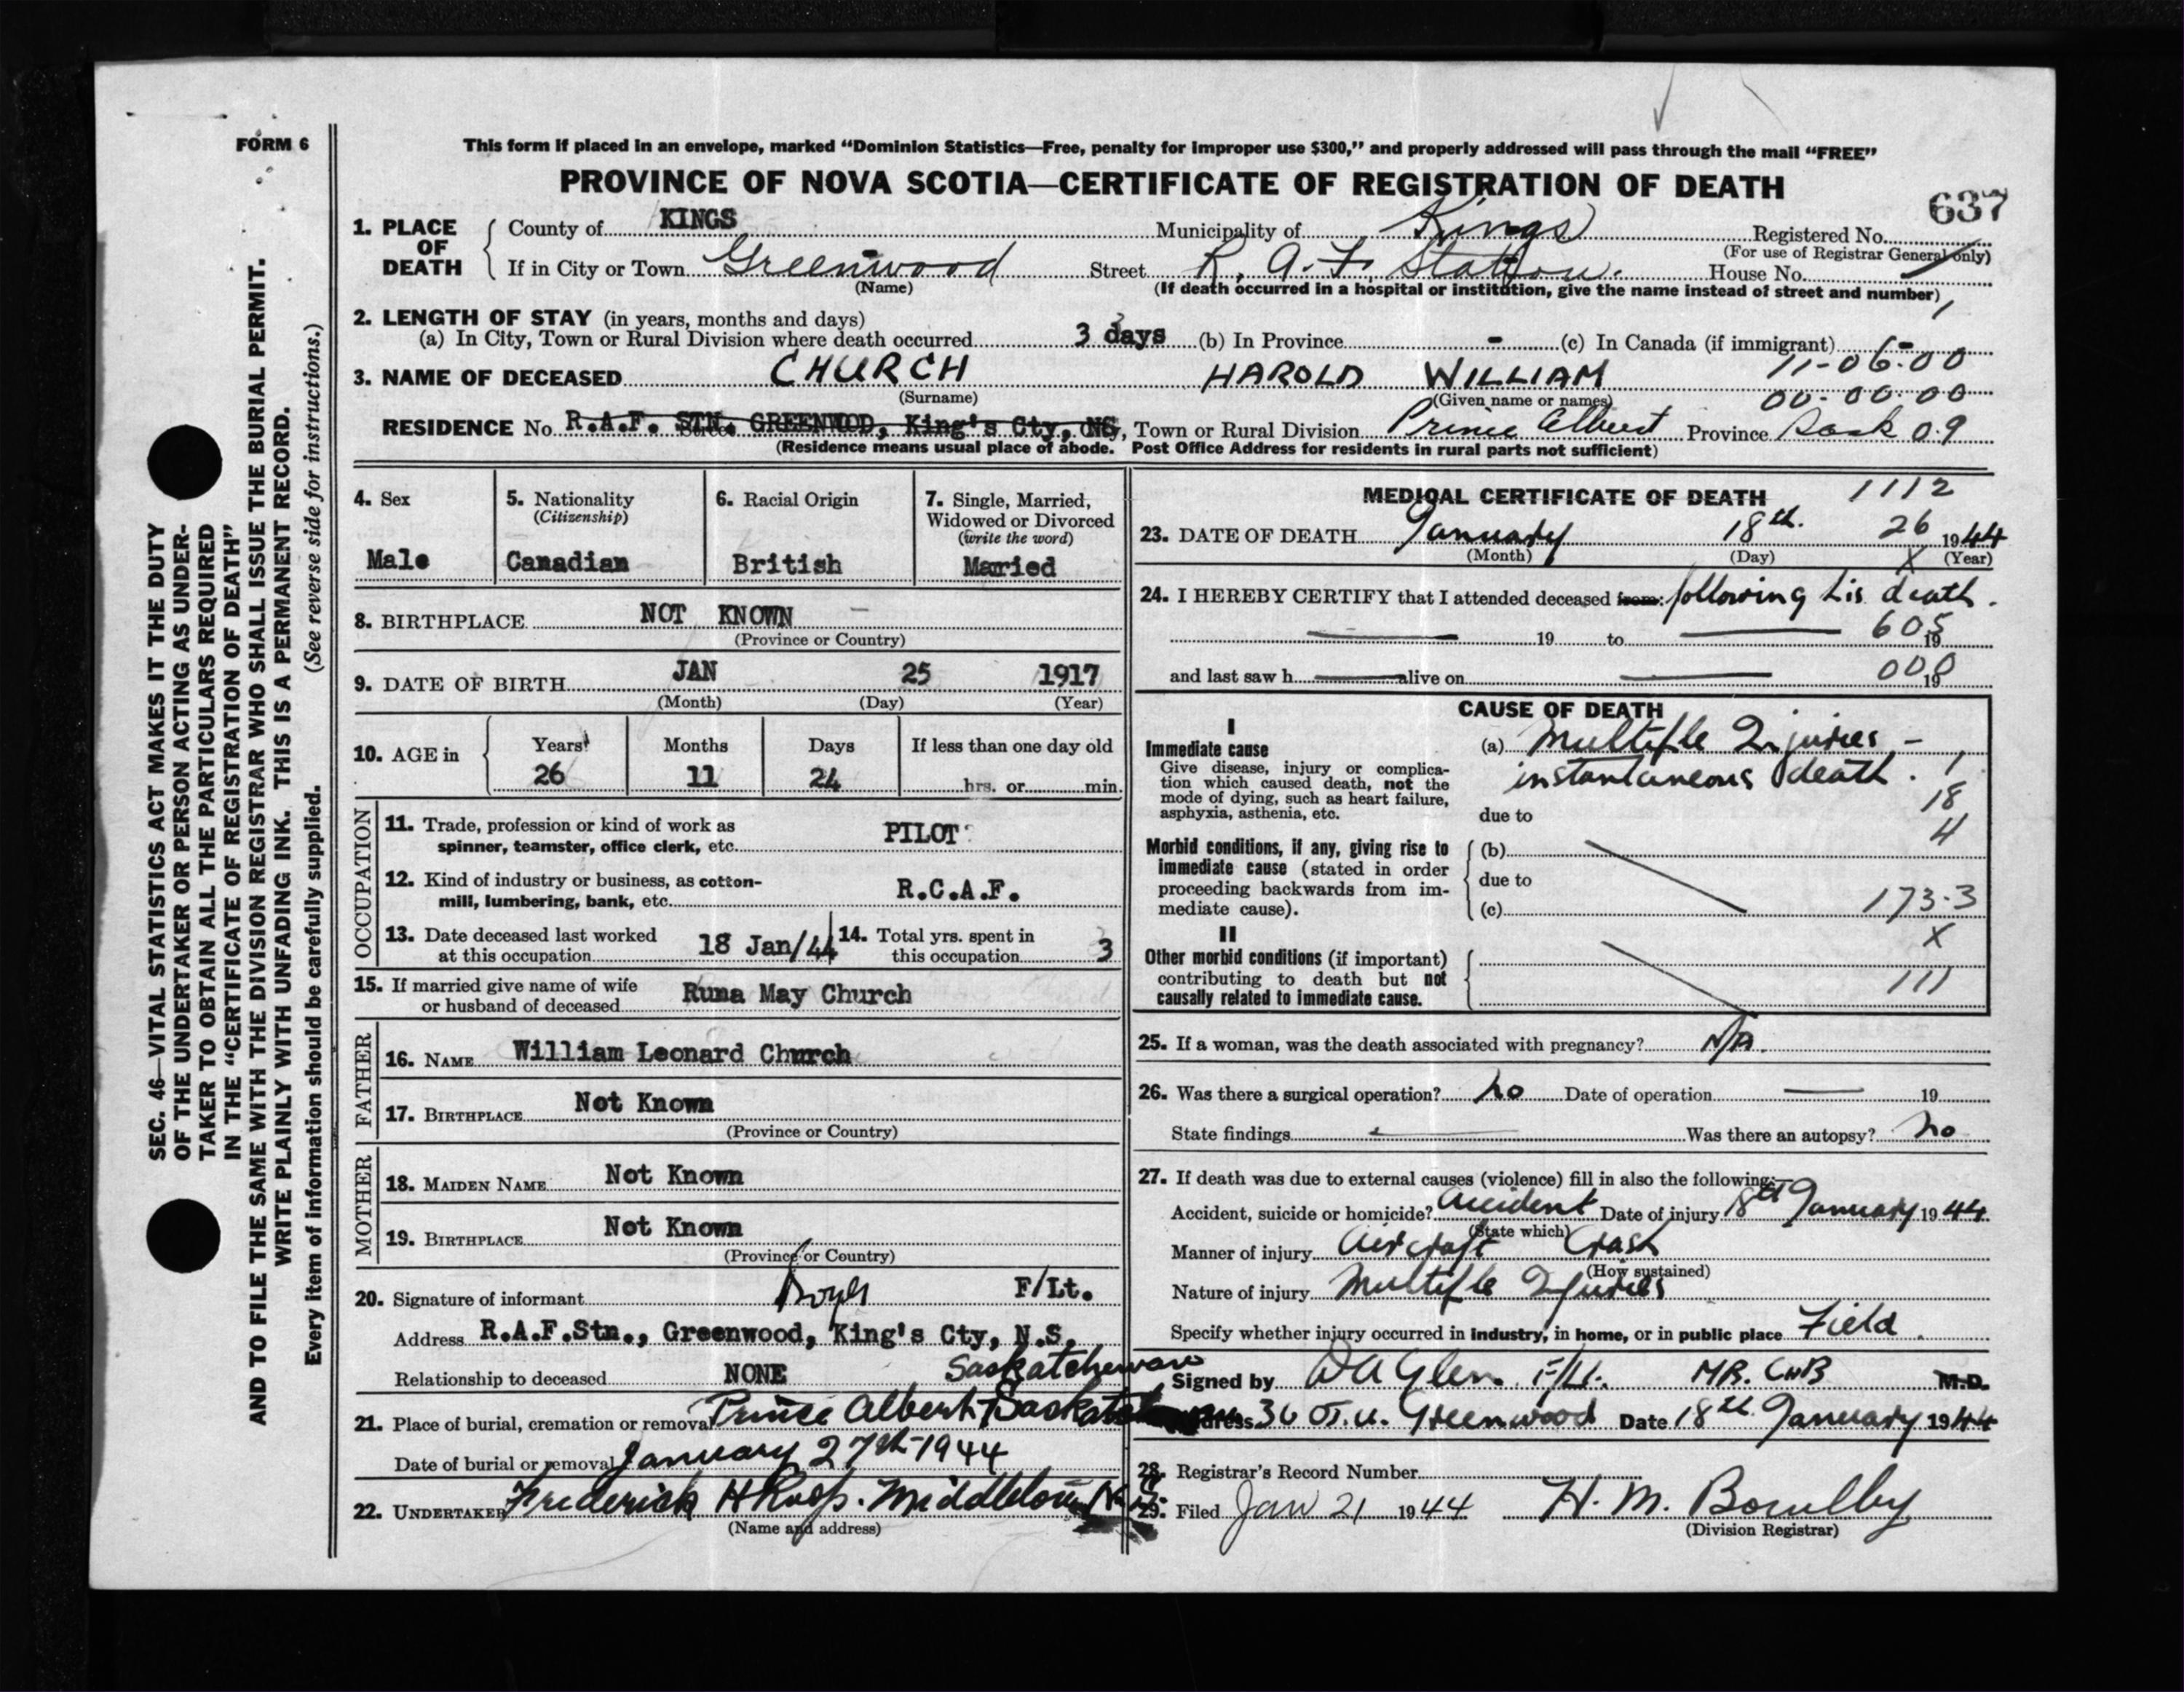 FORM 6
This form if placed in an envelope, marked “Dominion Statistics—Free, penalty for improper use $300,” and properly addressed will pass through the mail “FREE”
PROVINCE OF NOVA SCOTIA—CERTIFICATE OF REGISTRATION OF DEATH
637
1. PLACE OF DEATH
County of KINGS Municipality of Kings Registered No.
(For use of Registrar General only)
If in City or Town Greenwood Street R.A.F. Station. House No.
(Name) (If death occurred in a hospital or institution, give the name instead of street and number)
2. LENGTH OF STAY (in years, months and days)
(a) In City, Town or Rural Division where death occurred 3 days (b) In Province - (c) In Canada (if immigrant) -
11-06-00
3. NAME OF DECEASED CHURCH HAROLD WILLIAM
(Surname) (Given name or names)
00-00-00
RESIDENCE No. R.A.F. STN. GREENWOOD, King's Cty, NS, Town or Rural Division Prince Albert Province Sask 09
(Residence means usual place of abode. Post Office Address for residents in rural parts not sufficient)
4. Sex
Male
5. Nationality
(Citizenship)
Canadian
6. Racial Origin
British
7. Single, Married, Widowed or Divorced
(write the word)
Married
8. BIRTHPLACE NOT KNOWN
(Province or Country)
9. DATE OF BIRTH JAN 25 1917
(Month) (Day) (Year)
10. AGE in
Years Months Days If less than one day old
26 11 24 hrs. or min.
OCCUPATION
11. Trade, profession or kind of work as
spinner, teamster, office clerk, etc. PILOT
12. Kind of industry or business, as cotton-
mill, lumbering, bank, etc. R.C.A.F.
13. Date deceased last worked
at this occupation 18 Jan/44
14. Total yrs. spent in
this occupation 3
15. If married give name of wife
or husband of deceased Runa May Church
FATHER
16. NAME William Leonard Church
17. BIRTHPLACE Not Known
(Province or Country)
MOTHER
18. MAIDEN NAME Not Known
19. BIRTHPLACE Not Known
(Province or Country)
20. Signature of informant F/Lt.
Address R.A.F.Stn., Greenwood, King's Cty, N.S.
Relationship to deceased NONE
Saskatchewan
21. Place of burial, cremation or removal Prince Albert
Date of burial or removal January 27th 1944
22. UNDERTAKER Frederick H Roop. Middleton N.S.
(Name and address)
MEDICAL CERTIFICATE OF DEATH
1112
23. DATE OF DEATH January 18th. 26 1944
(Month) (Day) X (Year)
24. I HEREBY CERTIFY that I attended deceased from: following his death.
19 to 605 19
and last saw h alive on 000 19
CAUSE OF DEATH
I
Immediate cause
Give disease, injury or complica-
tion which caused death, not the
mode of dying, such as heart failure,
asphyxia, asthenia, etc.
(a) Multiple Injuries -
instantaneous death.
1
18
4
due to
Morbid conditions, if any, giving rise to
immediate cause (stated in order
proceeding backwards from im-
mediate cause).
(b)
due to
(c) 173-3
X
II
Other morbid conditions (if important)
contributing to death but not
causally related to immediate cause.
111
25. If a woman, was the death associated with pregnancy? N/A.
26. Was there a surgical operation? no Date of operation 19
State findings Was there an autopsy? no
27. If death was due to external causes (violence) fill in also the following:—
Accident, suicide or homicide? Accident Date of injury 18th January 1944
(State which)
Manner of injury Aircraft Crash
(How sustained)
Nature of injury Multiple Injuries
Specify whether injury occurred in industry, in home, or in public place Field.
Signed by D A Glen F/Lt. MB. ChB M.D.
Address 36 O.T.U. Greenwood Date 18th January 1944
28. Registrar's Record Number
29. Filed Jan 21 1944 H. M.
(Division Registrar)
SEC. 46—VITAL STATISTICS ACT MAKES IT THE DUTY
OF THE UNDERTAKER OR PERSON ACTING AS UNDER-
TAKER TO OBTAIN ALL THE PARTICULARS REQUIRED
IN THE “CERTIFICATE OF REGISTRATION OF DEATH”
AND TO FILE THE SAME WITH THE DIVISION REGISTRAR WHO SHALL ISSUE THE BURIAL PERMIT.
WRITE PLAINLY WITH UNFADING INK. THIS IS A PERMANENT RECORD.
Every item of information should be carefully supplied. (See reverse side for instructions.)